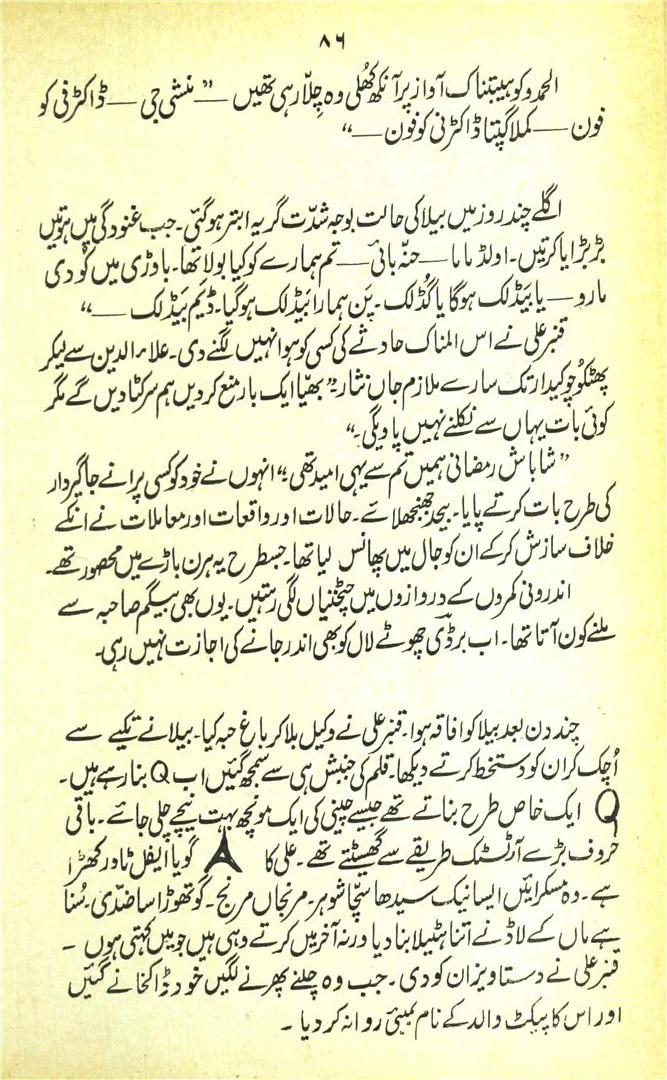 ۸۶
الحمدو کو ہیبتناک آواز پر آنکھ کھُلی وہ چِلّا رہی تھیں — ”منشی جی — ڈاکٹرنی کو
فون — کملا گپتا ڈاکٹرنی کو فون —“
اگلے چند روز میں بیلا کی حالت بوجہ شدّت گریہ ابتر ہو گئی۔ جب غنودگی میں ہوتیں
بڑبڑایا کرتیں۔ اولڈ ماما — حنّہ بائی — تم ہمارے کو کیا بولا تھا۔ باوڑی میں کوڑی
مارو — یا بَیڈ لک ہوگا یا گُڈ لک۔ پَن ہمارا بَیڈ لک ہو گیا۔ ڈیَم بَیڈ لک —“
قنبر علی نے اس المناک حادثے کی کسی کو ہوا نہیں لگنے دی۔ علاء الدین سے لیکر
پھٹکُو چوکیدار تک سارے ملازم جاں نثار۔ ”بھیّا ایک بار منع کر دیں ہم سر کٹا دیں گے مگر
کوئی بات یہاں سے نکلنے نہیں پاویگی۔“
”شاباش رمضانی ہمیں تم سے یہی امید تھی“ انہوں نے خود کو کسی پرانے جاگیردار
کی طرح بات کرتے پایا۔ بیحد جھنجھلائے۔ حالات اور واقعات اور معاملات نے انکے
خلاف سازش کر کے ان کو جال میں پھانس لیا تھا۔ جسطرح یہ ہرن باڑے میں محصور تھے۔
اندرونی کمروں کے دروازوں میں چٹخنیاں لگی رہتیں۔ یوں بھی بیگم صاحبہ سے
ملنے کون آتا تھا۔ اب برڈی چھوٹے لال کو بھی اندر جانے کی اجازت نہیں رہی۔
چند دن بعد بیلا کو افاقہ ہوا۔ قنبر علی نے وکیل بلا کر باغ ہبہ کیا۔ بیلا نے تکیے سے
اُچک کر ان کو دستخط کرتے دیکھا۔ قلم کی جنبش ہی سے سمجھ گئیں اب Q بنا رہے ہیں۔
Q ایک خاص طرح بناتے تھے جیسے چینی کی ایک مونچھ بہت نیچے چلی جائے۔ باقی
حروف بڑے آرٹسٹک طریقے سے گھسیٹتے تھے۔ علی کا A گویا ایفل ٹاور کھڑا
ہے۔ وہ مسکرائیں ایسا نیک سیدھا سچّا شوہر۔ مرنجاں مرنج۔ گو تھوڑا سا ضدّی۔ سُنا
ہے ماں کے لاڈ نے اتنا ہٹیلا بنا دیا ورنہ آخر میں کرتے وہی ہیں جو میں کہتی ہوں۔
قنبر علی نے دستاویز ان کو دی۔ جب وہ چلنے پھرنے لگیں خود ڈاکخانے گئیں
اور اس کا پیکٹ والد کے نام بمبئی روانہ کر دیا۔